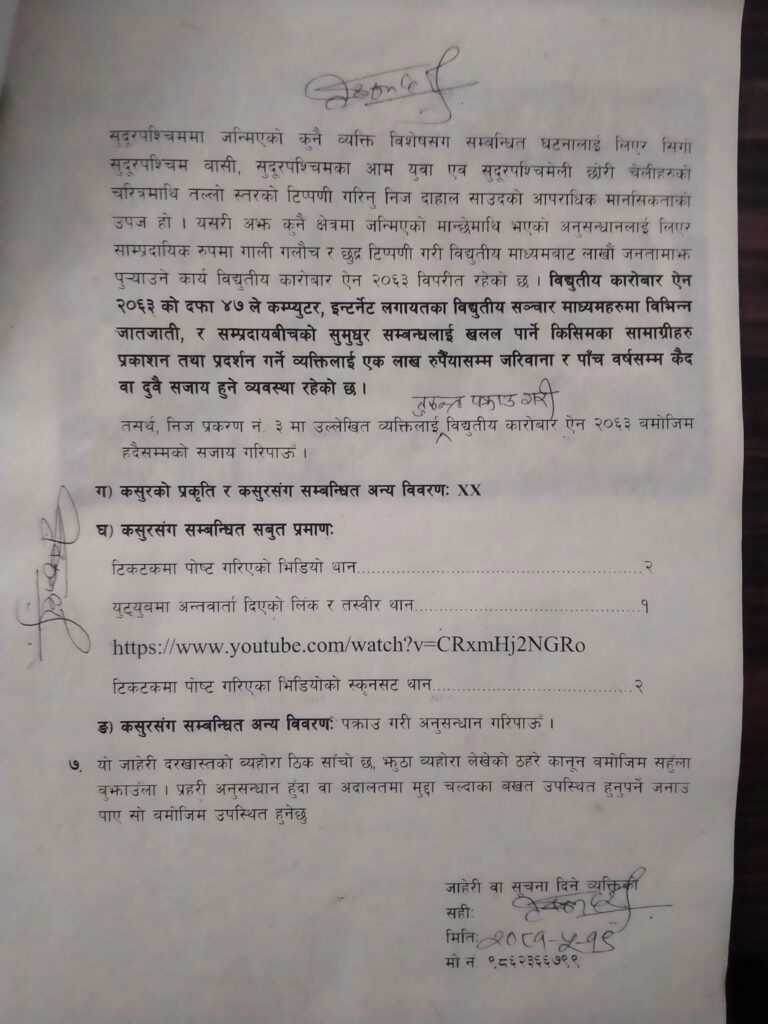 सुदूरपश्चिममा जन्मिएको कुनै व्यक्ति विशेषसंग सम्बन्धित घटनालाई लिएर सिंगो
सुदूरपश्चिम बासी, सुदूरपश्चिमका आम युवा एवं सुदूरपश्चिमेली छोरी चेलीहरुको
चरित्रमाथि तल्लो स्तरको टिप्पणी गरिनु निज दाहाल साउदको आपराधिक मानसिकताको
उपज हो । यसरी अझ कुनै क्षेत्रमा जन्मिएको मान्छेमाथि भएको अनुसन्धानलाई लिएर
साम्प्रदायिक रुपमा गाली गलौच र छुद्र टिप्पणी गरी विद्युतीय माध्यमबाट लाखौं जनतामाझ
पुऱ्याउने कार्य विद्युतीय कारोबार ऐन २०६३ विपरीत रहेको छ । विद्युतीय कारोबार ऐन
२०६३ को दफा ४७ ले कम्प्युटर, इन्टर्नेट लगायतका विद्युतीय सञ्चार माध्यमहरुमा विभिन्न
जातजाती, र सम्प्रदायबीचको सुमुधुर सम्बन्धलाई खलल पार्ने किसिमका सामाग्रीहरु
प्रकाशन तथा प्रदर्शन गर्ने व्यक्तिलाई एक लाख रुपैँयासम्म जरिवाना र पाँच वर्षसम्म कैद
वा दुवै सजाय हुने व्यवस्था रहेको छ ।
तुरुन्त पक्राउ गरी
तसर्थ, निज प्रकरण नं. ३ मा उल्लेखित व्यक्तिलाई विद्युतीय कारोबार ऐन २०६३ बमोजिम
हदैसम्मको सजाय गरिपाऊँ ।
ग) कसुरको प्रकृति र कसुरसंग सम्बन्धित अन्य विवरणः XX
घ) कसुरसंग सम्बन्धित सबुत प्रमाणः
टिकटकमा पोष्ट गरिएको भिडियो थान..................................................२
युट्युबमा अन्तवार्ता दिएको लिंक र तस्वीर थान.......................................१
https://www.youtube.com/watch?v=CRxmHj2NGRo
टिकटकमा पोष्ट गरिएका भिडियोको स्कृनसट थान...................................२
ङ) कसुरसंग सम्बन्धित अन्य विवरणः पक्राउ गरी अनुसन्धान गरिपाऊँ ।
७. यो जाहेरी दरखास्तको ब्यहोरा ठिक साँचो छ, झुठा ब्यहोरा लेखेको ठहरे कानून बमोजिम सहुँला
बुझाउँला । प्रहरी अनुसन्धान हुँदा वा अदालतमा मुद्दा चल्दाका बखत उपस्थित हुनुपर्ने जनाउ
पाए सो बमोजिम उपस्थित हुनेछु
जाहेरी वा सूचना दिने व्यक्तिको
सहीः
मितिः २०८१-५-१९
मो न. ९८६२३६६७९९